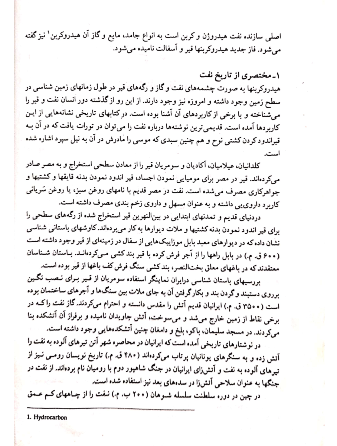 اصلی سازنده نفت هیدروژن و کربن است به انواع جامد، مایع و گاز آن هیدروکربن¹ نیز گفته
می‌شود. فاز جدید هیدروکربنها قیر و آسفالت نامیده می‌شود.
۱ـ مختصری از تاریخ نفت
هیدروکربنها به صورت چشمه‌های نفت و گاز و رگه‌های قیر در طول زمانهای زمین شناسی در
سطح زمین وجود داشته و امروزه نیز وجود دارند. از این رو از گذشته دور انسان نفت و قیر را
می‌شناخته و با برخی از کاربردهای آن آشنا بوده است. در کتابهای تاریخی نشانه‌هایی از این
کاربردها آمده است. قدیمی‌ترین نوشته‌ها درباره نفت را می‌توان در تورات یافت که در آن به
قیراندود کردن کشتی نوح و هم چنین سبدی که موسی را مادرش در آن به نیل سپرد اشاره شده
است.
کلدانیان، عیلامیان، آکادیان و سومریان قیر را از معادن سطحی استخراج و به مصر صادر
می‌کرده‌اند. قیر در مصر برای مومیایی نمودن اجساد قیر اندود نمودن بدنه قایقها و کشتیها و
جواهرکاری مصرف می‌شده است. نفت در مصر قدیم با نامهای روغن سبز، یا روغن شریانی
کاربرد دارویی داشته و به عنوان مسهل و داروی زخم بندی مصرف داشته است.
دردنیای قدیم و تمدنهای ابتدایی در بین‌النهرین قیر استخراج شده از رگه‌های سطحی را
برای قیر اندود نمودن بدنه کشتیها و ملات دیوارها به کار می‌برده‌اند. کاوشهای باستانی شناسی
نشان داده که در دیوارهای معبد بابل موزاییک‌هایی از سفال در زمینه‌ای از قیر وجود داشته است
(۶۰۰ ق. م). در بابل راهها را از آجر فرش کرده با قیر بند کشی می‌کرده‌اند. باستان شناسان
معتقدند که در باغهای معلق بخت‌النصر، بند کشی سنگ فرش کف باغها از قیر بوده است.
بررسیهای باستان شناسی درایران نمایشگر استفاده سومریان از قیر برای نصب نگین
برروی دستبند و گردن بند و بکارگرفتن آن به جای ملات بین سنگ و آجرهای ساختمان بوده
است (۲۵۰۰ ق. م). ایرانیان قدیم آتش را مقدس دانسته و احترام می‌کردند. گاز نفت را که در
برخی نقاط از زمین خارج می‌شد و می‌سوخت، آتش جاویدان نامیده و برفراز آن آتشکده بنا
می‌کردند. در مسجد سلیمان، باکو، بلخ و دامغان چنین آتشکده‌هایی وجود داشته است.
در نوشتارهای تاریخی آمده است که ایرانیان در محاصره شهر آتن تیرهای آلوده به نفت را
آتش زده و به سنگرهای یونانیان پرتاب می‌کرده‌اند (۴۸۰ ق. م). تاریخ نویسان رومی نیز از
تیرهای آلوده به نفت و آتش‌زای ایرانیان در جنگ شاهپور دوم با رومیان نام برده‌اند. از نفت در
جنگها به عنوان سلاحی آتش‌زا در سده‌های بعد نیز استفاده شده است.
در چین در دوره سلطنت سلسله شوهان (۲۰۰ ب. م.) نفت را از چاههای کم عمق
1. Hydrocarbon